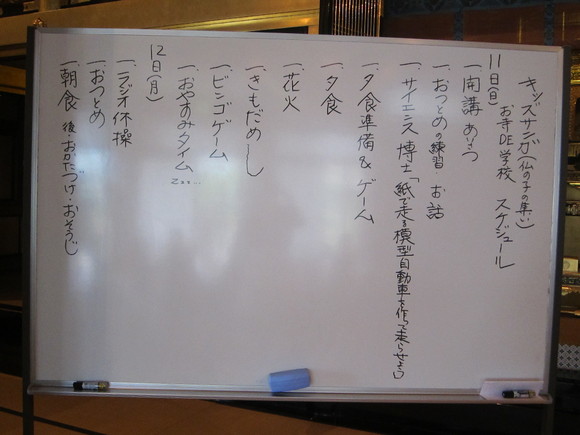 キッズサンガ(仏の子の集い)
お寺DE学校 スケジュール
11日(日)
一.開講 あいさつ
一.おつとめの練習 お話
一.サイエンス博士「紙で走る模型自動車を作って走らせよう」
一.夕食準備&ゲーム
一.夕食
一.花火
一.きもだめーし
一.ビンゴゲーム
一.おやすみタイム zzz...
12日(月)
一.ラジオ体操
一.おつとめ
一.朝食 後・おかたづけ・おそうじ